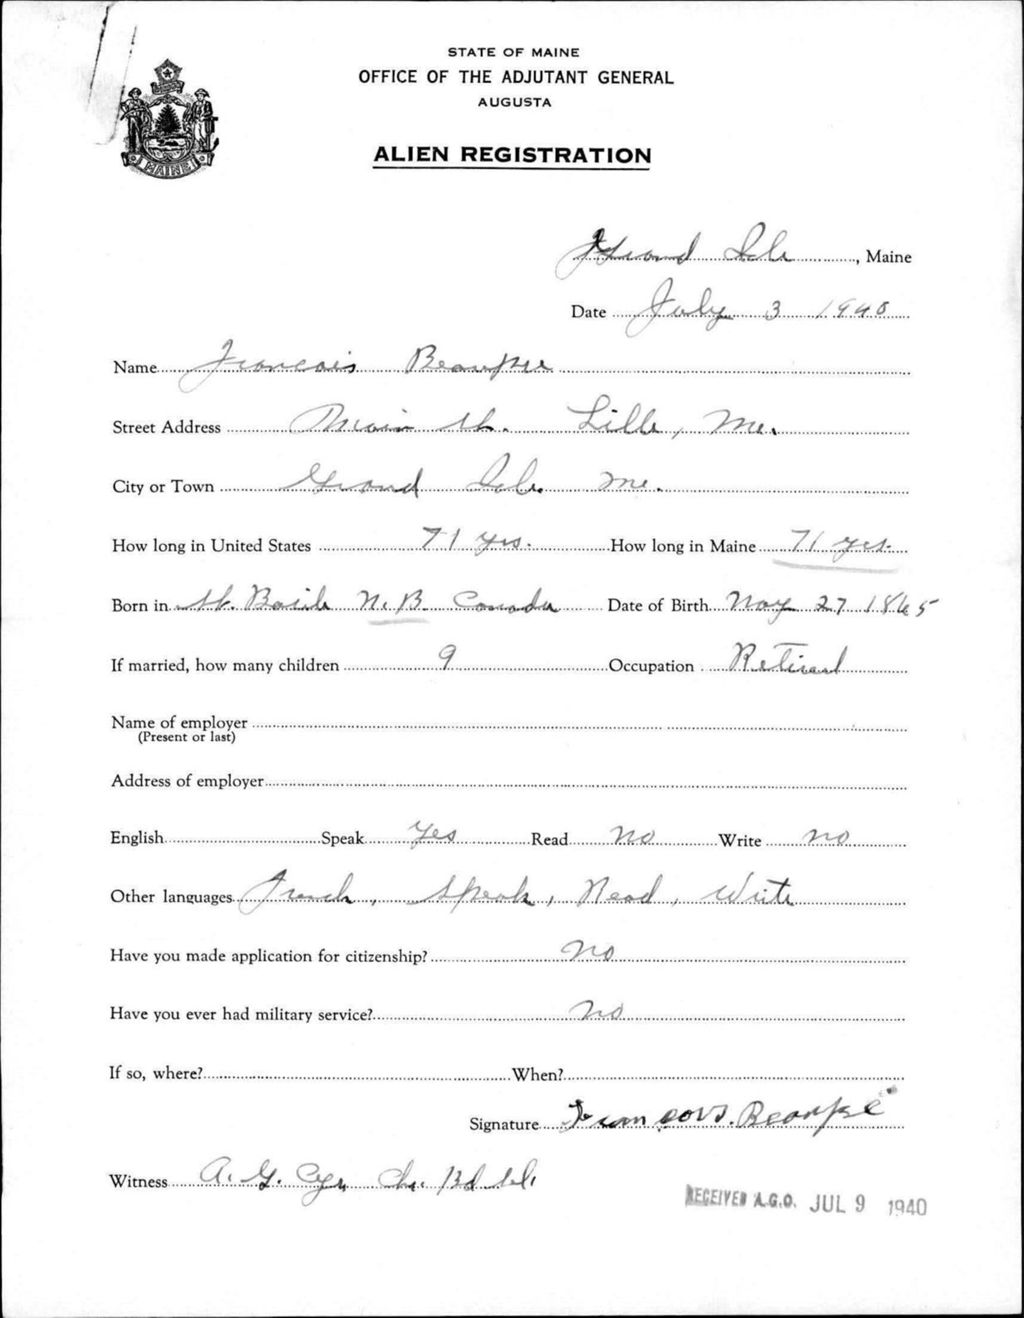 STATE OF MAINE
OFFICE OF THE ADJUTANT GENERAL
AUGUSTA
ALIEN REGISTRATION
MAINE
Grand Isle, Maine
Date July 3 1940
Name Francois Beaupre
Street Address Main St. Lille, Me.
City or Town Grand Isle. Me.
How long in United States 71 yrs. How long in Maine 71 yrs.
Born in St. Basile N.B. Canada Date of Birth 27 1865
If married, how many children 9 Occupation Retired
Name of employer
(Present or last)
Address of employer
English Speak Yes Read No Write No
Other languages French, Speak, Read, Write
Have you made application for citizenship? No
Have you ever had military service? No
If so, where? When?
Signature Francois. Beaupré
Witness A. G. Cyr, Ch. Bd Sel.
RECEIVED A.G.O. JUL 9 1940